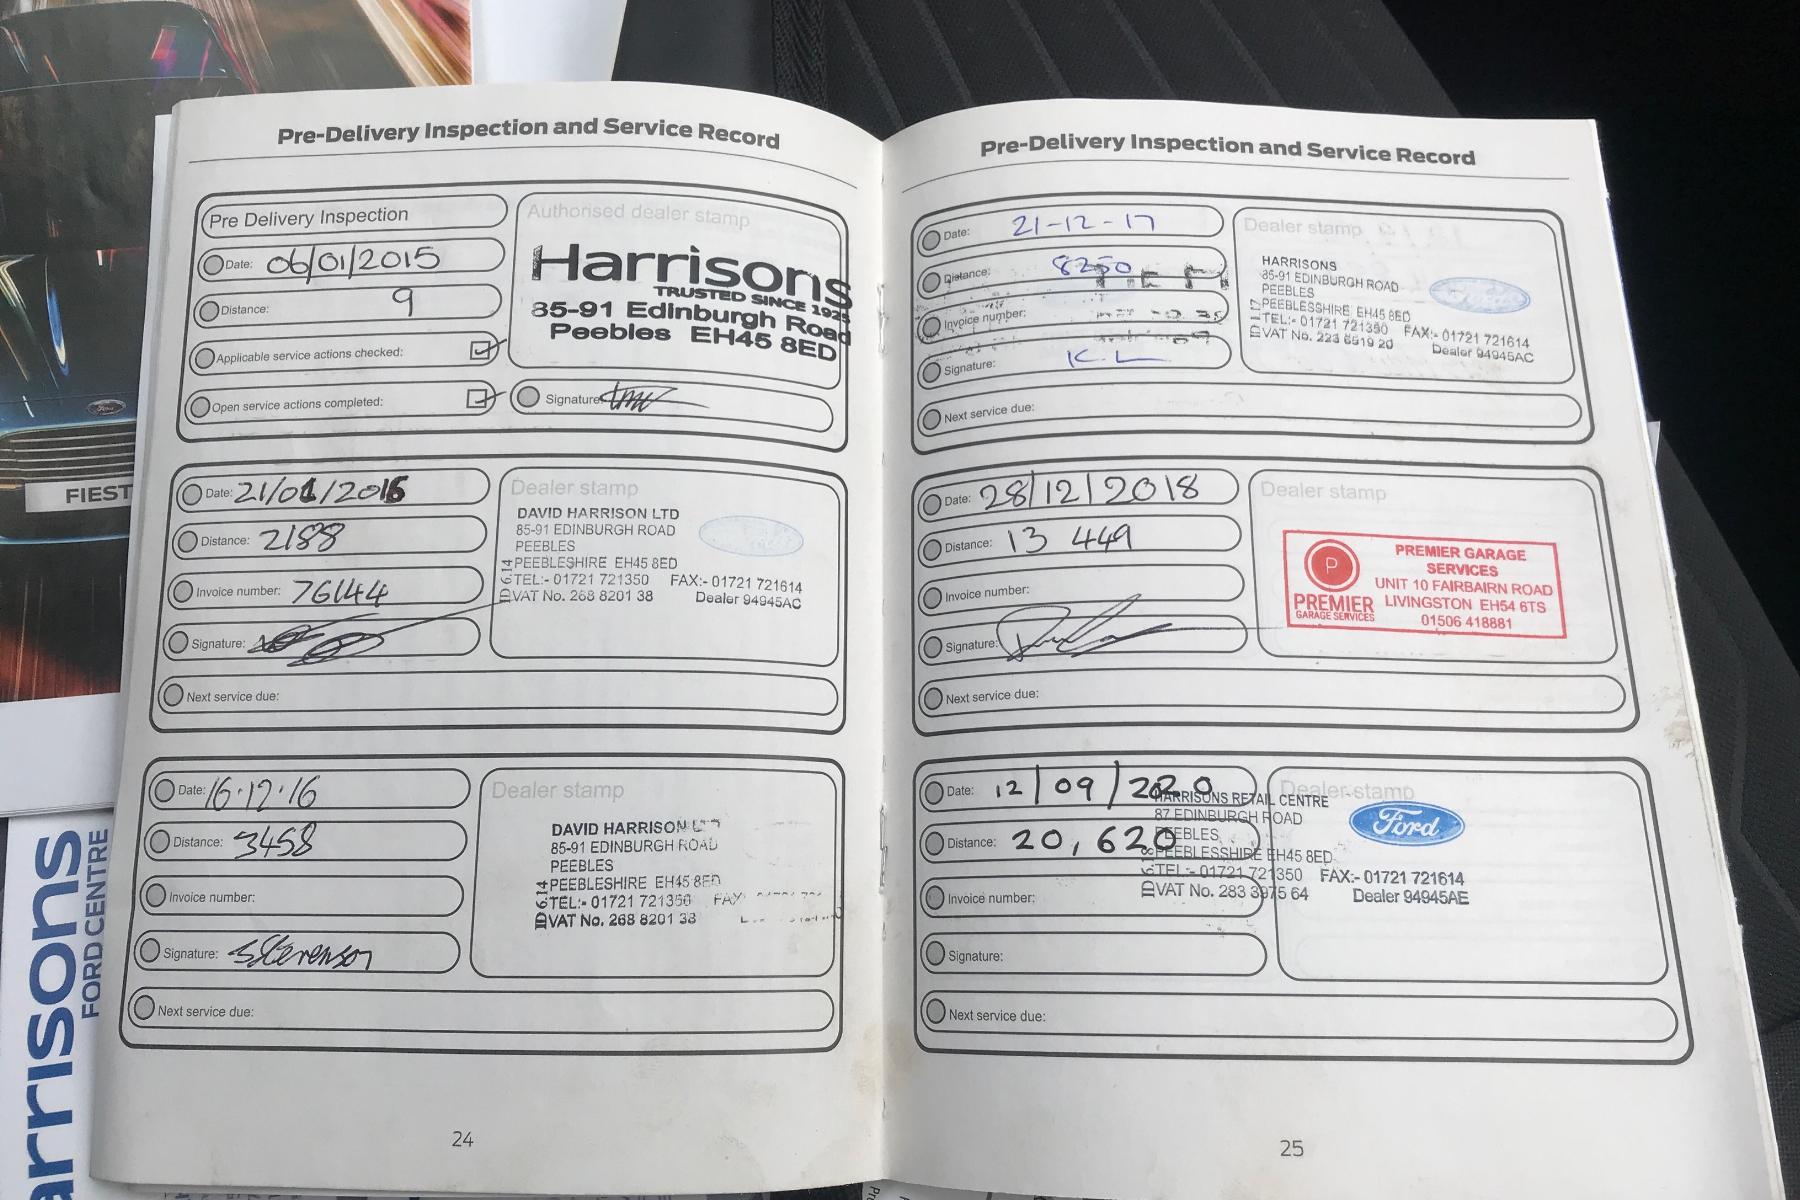 Pre-Delivery Inspection and Service Record
Pre Delivery Inspection
Date: 06/01/2015
Distance: 9
Applicable service actions checked:
Open service actions completed:
Authorised dealer stamp
Harrisons
TRUSTED SINCE 1925
85-91 Edinburgh Road
Peebles EH45 8ED
Signature
Date: 21/01/2016
Distance: 2188
Invoice number: 76144
Signature:
Next service due:
Dealer stamp
DAVID HARRISON LTD
85-91 EDINBURGH ROAD
PEEBLES
PEEBLESHIRE EH45 8ED
TEL:- 01721 721350 FAX:- 01721 721614
VAT No. 268 8201 38 Dealer 94945AC
Date: 16.12.16
Distance: 3458
Invoice number:
Signature: S Stevenson
Next service due:
Dealer stamp
DAVID HARRISON LTD
85-91 EDINBURGH ROAD
PEEBLES
PEEBLESHIRE EH45 8ED
TEL:- 01721 721350 FAX
VAT No. 268 8201 38
24
Pre-Delivery Inspection and Service Record
Date: 21-12-17
Distance: 8250
Invoice number:
Signature: K.L
Next service due:
Dealer stamp
HARRISONS
85-91 EDINBURGH ROAD
PEEBLES
PEEBLESSHIRE EH45 8ED
TEL:- 01721 721350 FAX:- 01721 721614
VAT No. 223 6519 20 Dealer 94945AC
Date: 28/12/2018
Distance: 13 449
Invoice number:
Signature:
Next service due:
Dealer stamp
P
PREMIER
GARAGE SERVICES
PREMIER GARAGE
SERVICES
UNIT 10 FAIRBAIRN ROAD
LIVINGSTON EH54 6TS
01506 418881
Date: 12/09/2020
Distance: 20,620
Invoice number:
Signature:
Next service due:
Dealer stamp
HARRISONS RETAIL CENTRE
87 EDINBURGH ROAD
PEEBLES
PEEBLESSHIRE EH45 8ED
TEL:- 01721 721350 FAX:- 01721 721614
VAT No. 283 3975 64 Dealer 94945AE
Ford
25
FIEST
Ford
arrisons
FORD CENTRE